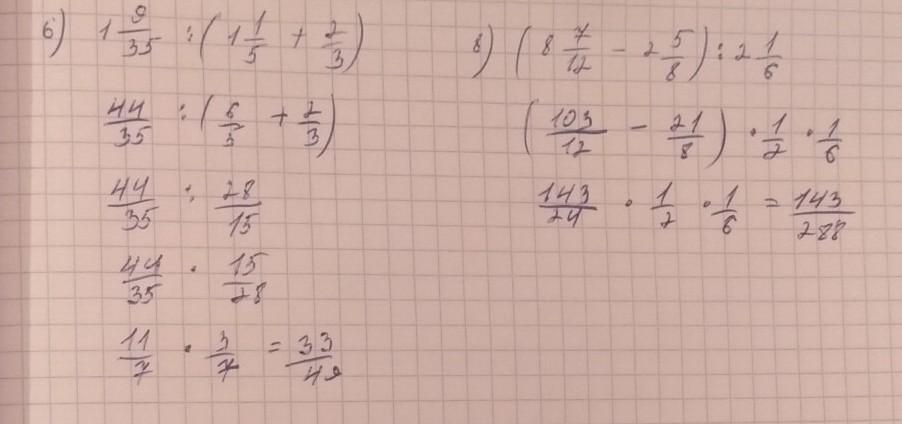 б) 1 9/35 : (1 1/5 + 2/3)
44/35 : (6/5 + 2/3)
44/35 : 28/15
44/35 · 15/28
11/7 · 3/7 = 33/49
в) (8 7/12 - 2 5/8) : 2 1/6
(103/12 - 21/8) · 1/2 · 1/6
143/24 · 1/2 · 1/6 = 143/288